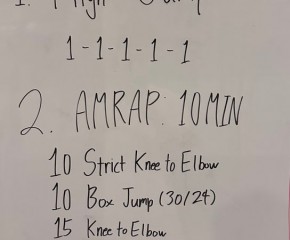 1. High Jump
1-1-1-1-1
2. AMRAP: 10 MIN
10 Strict Knee to Elbow
10 Box Jump (30/24)
15 Knee to Elbow